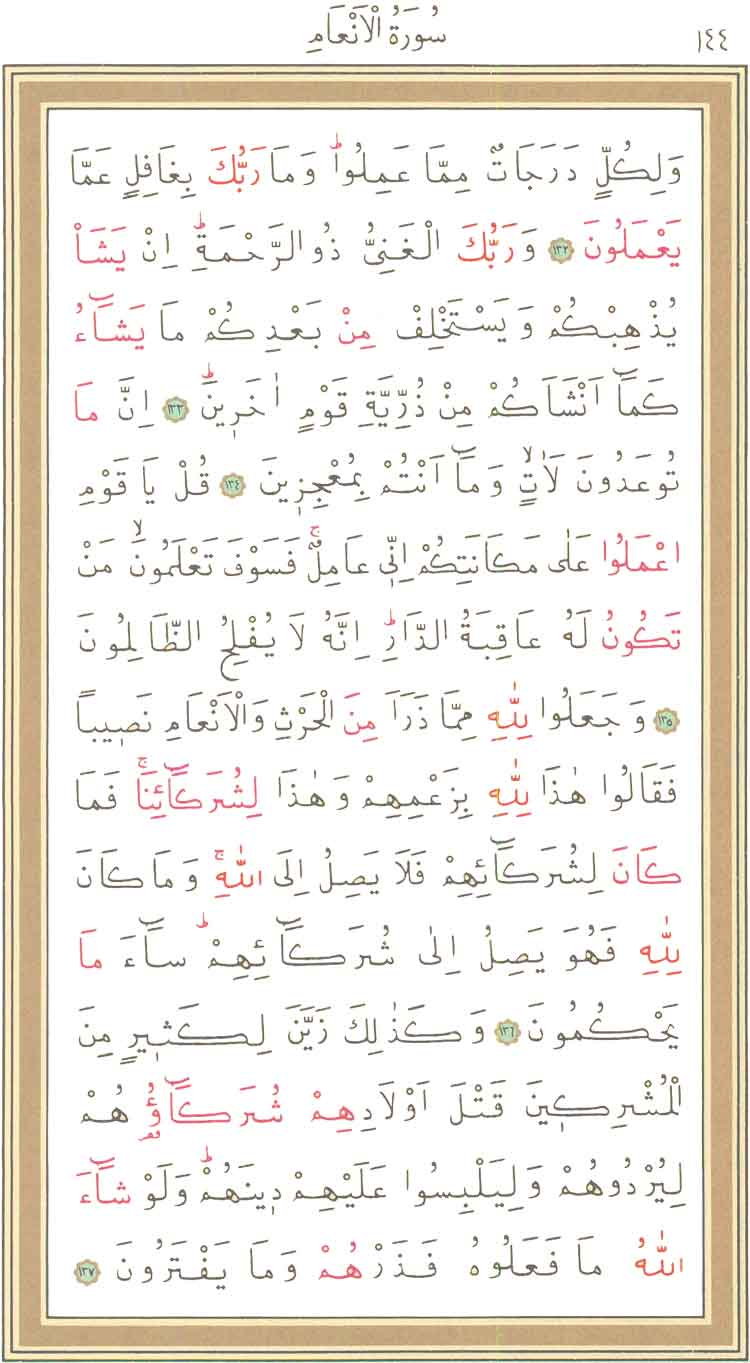 ١٤٤
سُورَةُ الْاَنْعَامِ
وَلِكُلٍّ دَرَجَاتٌ مِمَّا عَمِلُواۜ وَمَا رَبُّكَ بِغَافِلٍ عَمَّا
يَعْمَلُونَ ﴿١٣٢﴾ وَرَبُّكَ الْغَنِىُّ ذُوالرَّحْمَةِۜ اِنْ يَشَأْ
يُذْهِبْكُمْ وَيَسْتَخْلِفْ مِنْ بَعْدِكُمْ مَا يَشَٓاءُ
كَمَٓا اَنْشَاَكُمْ مِنْ ذُرِّيَّةِ قَوْمٍ اٰخَر۪ينَۜ ﴿١٣٣﴾ اِنَّ مَا
تُوعَدُونَ لَاٰتٍۙ وَمَٓا اَنْتُمْ بِمُعْجِز۪ينَ ﴿١٣٤﴾ قُلْ يَا قَوْمِ
اعْمَلُوا عَلٰى مَكَانَتِكُمْ اِنّ۪ى عَامِلٌۚ فَسَوْفَ تَعْلَمُونَۙ مَنْ
تَكُونُ لَهُ عَاقِبَةُ الدَّارِۜ اِنَّهُ لَا يُفْلِحُ الظَّالِمُونَ
﴿١٣٥﴾ وَجَعَلُوا لِلّٰهِ مِمَّا ذَرَاَ مِنَ الْحَرْثِ وَالْاَنْعَامِ نَص۪يباً
فَقَالُوا هٰذَا لِلّٰهِ بِزَعْمِهِمْ وَهٰذَا لِشُرَكَٓائِنَاۚ فَمَا
كَانَ لِشُرَكَٓائِهِمْ فَلَا يَصِلُ اِلَى اللّٰهِۚ وَمَا كَانَ
لِلّٰهِ فَهُوَ يَصِلُ اِلٰى شُرَكَٓائِهِمْۜ سَٓاءَ مَا
يَحْكُمُونَ ﴿١٣٦﴾ وَكَذٰلِكَ زَيَّنَ لِكَث۪يرٍ مِنَ
الْمُشْرِك۪ينَ قَتْلَ اَوْلَادِهِمْ شُرَكَٓاؤُ۬هُمْ
لِيُرْدُوهُمْ وَلِيَلْبِسُوا عَلَيْهِمْ د۪ينَهُمْۜ وَلَوْ شَٓاءَ
اللّٰهُ مَا فَعَلُوهُ فَذَرْهُمْ وَمَا يَفْتَرُونَ ﴿١٣٧﴾